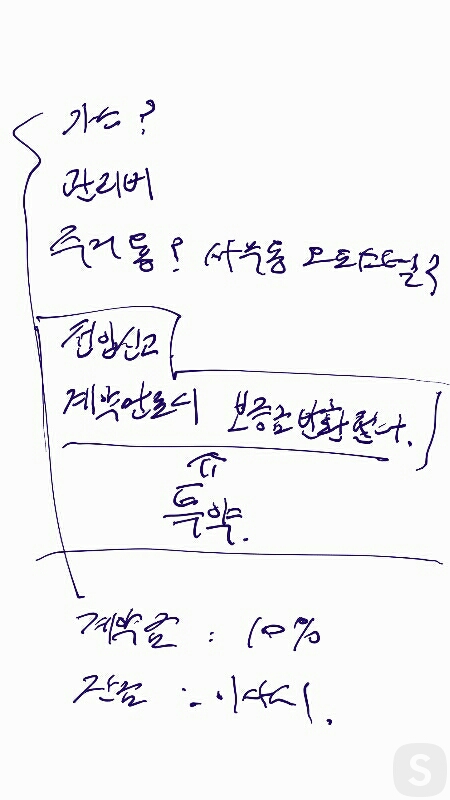 가스?
관리비
주거용? 사무용 오피스텔?
전입신고
계약만료시 보증금 반환 한다.
특약.
계약금 : 10%
잔금 : 이사시.
S